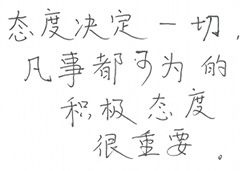 态度决定一切,
凡事都可为 的
积极态度
很重要。